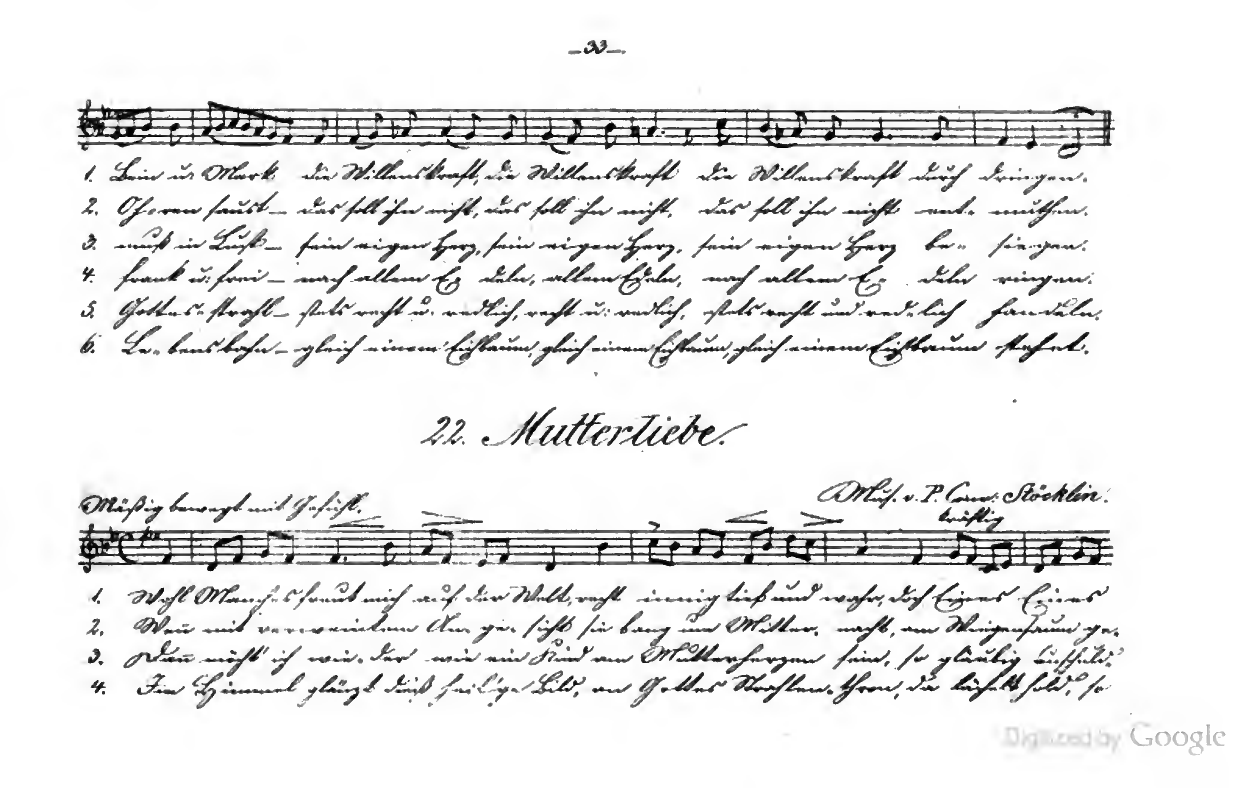 — 33 —.
1. Bein u. Mark die Willenskraft, die Willenskraft die Willenskraft durch dringen.
2. Ohren saust — das soll ihn nicht, das soll ihn nicht, das soll ihn nicht ent- muthen.
3. muß in Lust — sein eigen Herz, sein eigen Herz, sein eigen Herz be- siegen.
4. frank u: frei — nach allem E= deln, allem Edeln, nach allem E= deln ringen.
5. Gottes-strahl — stets recht u: redlich, recht u: redlich, stets recht und red-lich handeln.
6. Le-bensbahn — gleich einem Eichbaum, gleich einem Eichbaum, gleich einem Eichbaum stehet.
22. Mutterliebe.
Mäßig bewegt mit Gefühl.
Mus. v. P. Conr: Stöcklin.
kräftig
1. Wohl Manches freut mich auf der Welt, recht innig tief und wahr, doch Eines Eines
2. Wenn mit verweintem An- ge- sicht sie bang um Mitter- nacht, am Wiegensaum ge-
3. Dann möcht' ich wie-der wie ein Kind am Mutterherzen sein, so gläubig unschuld-
4. Im Himmel glänzt dieß heil'ge Bild, an Gottes Strahlen-thron, da lächelt hold, so
Digitized by Google